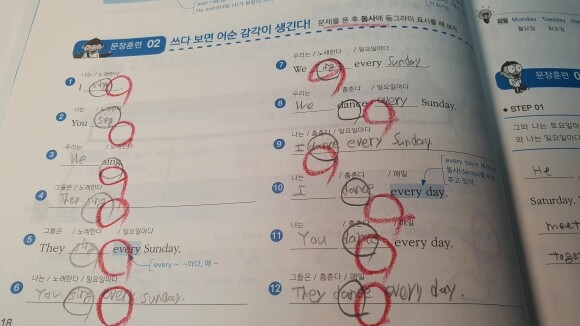 문장훈련 02 쓰다 보면 어순 감각이 생긴다! 문제를 푼 후 동사에 동그라미 표시를 해 보자
1 나는 / 노래한다
I sing
2 너는 / 노래한다
You sing
3 우리는 / 노래한다
We sing
4 그들은 / 노래한다
They sing
5 그들은 / 노래한다 / 일요일마다
They sing every Sunday.
every ~: ~마다, 매 ~
6 너는 / 노래한다 / 일요일마다
You sing every Sunday.
7 우리는 / 노래한다 / 일요일마다
We sing every Sunday
8 우리는 / 춤춘다 / 일요일마다
We dance every Sunday.
9 나는 / 춤춘다 / 일요일마다
I dance every Sunday.
10 나는 / 춤춘다 / 매일
I dance every day.
every day는
동사(dance)를
주고 있어.
11 너는 / 춤춘다 / 매일
You dance every day.
12 그들은 / 춤춘다 / 매일
They dance every day.
18
Monday Tuesday
월요일 화요일
문장훈련
STEP 01
그와 나는 토요일마
나와 너는 일요일
He
Saturday.
meet